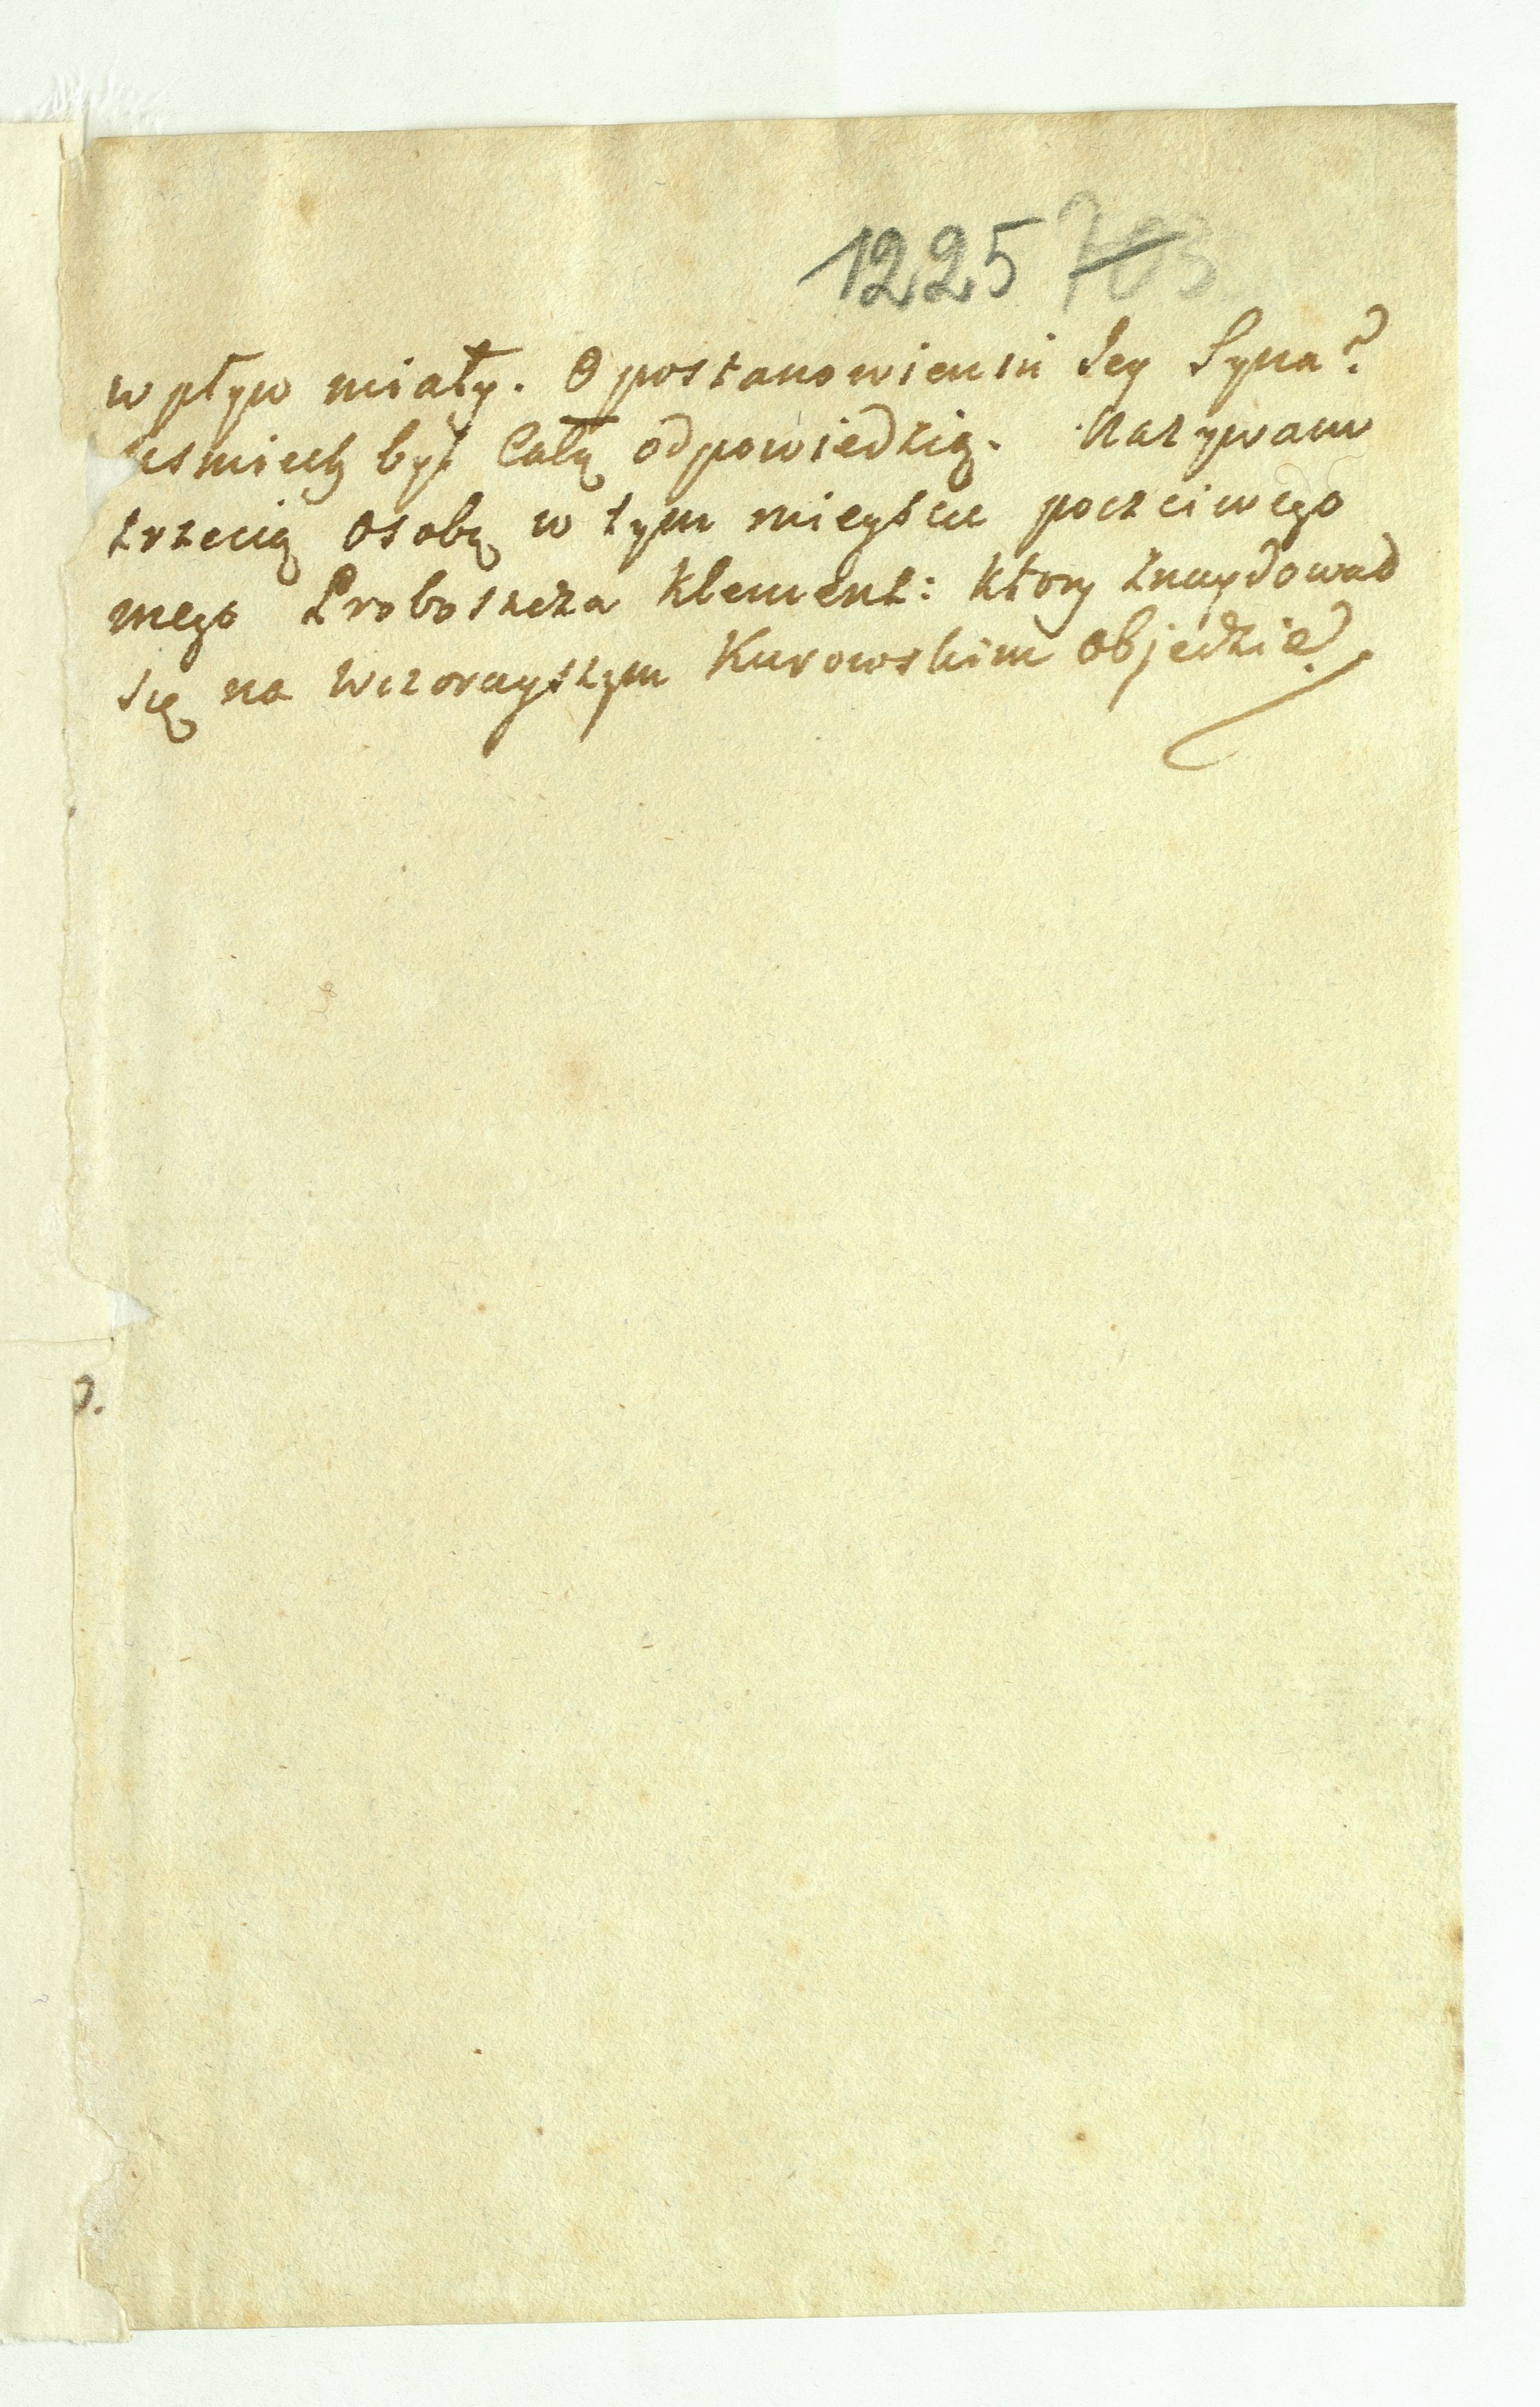 1225 703
wpływ miały. O postanowieniu Jey Syna?
uśmiech był Całą odpowiedzią. Nazywam
trzecią osobą w tym mieyscu poczciwego
mego Proboszcza Klement: który znaydował
się na wczorayszym Kurowskim objedzie.